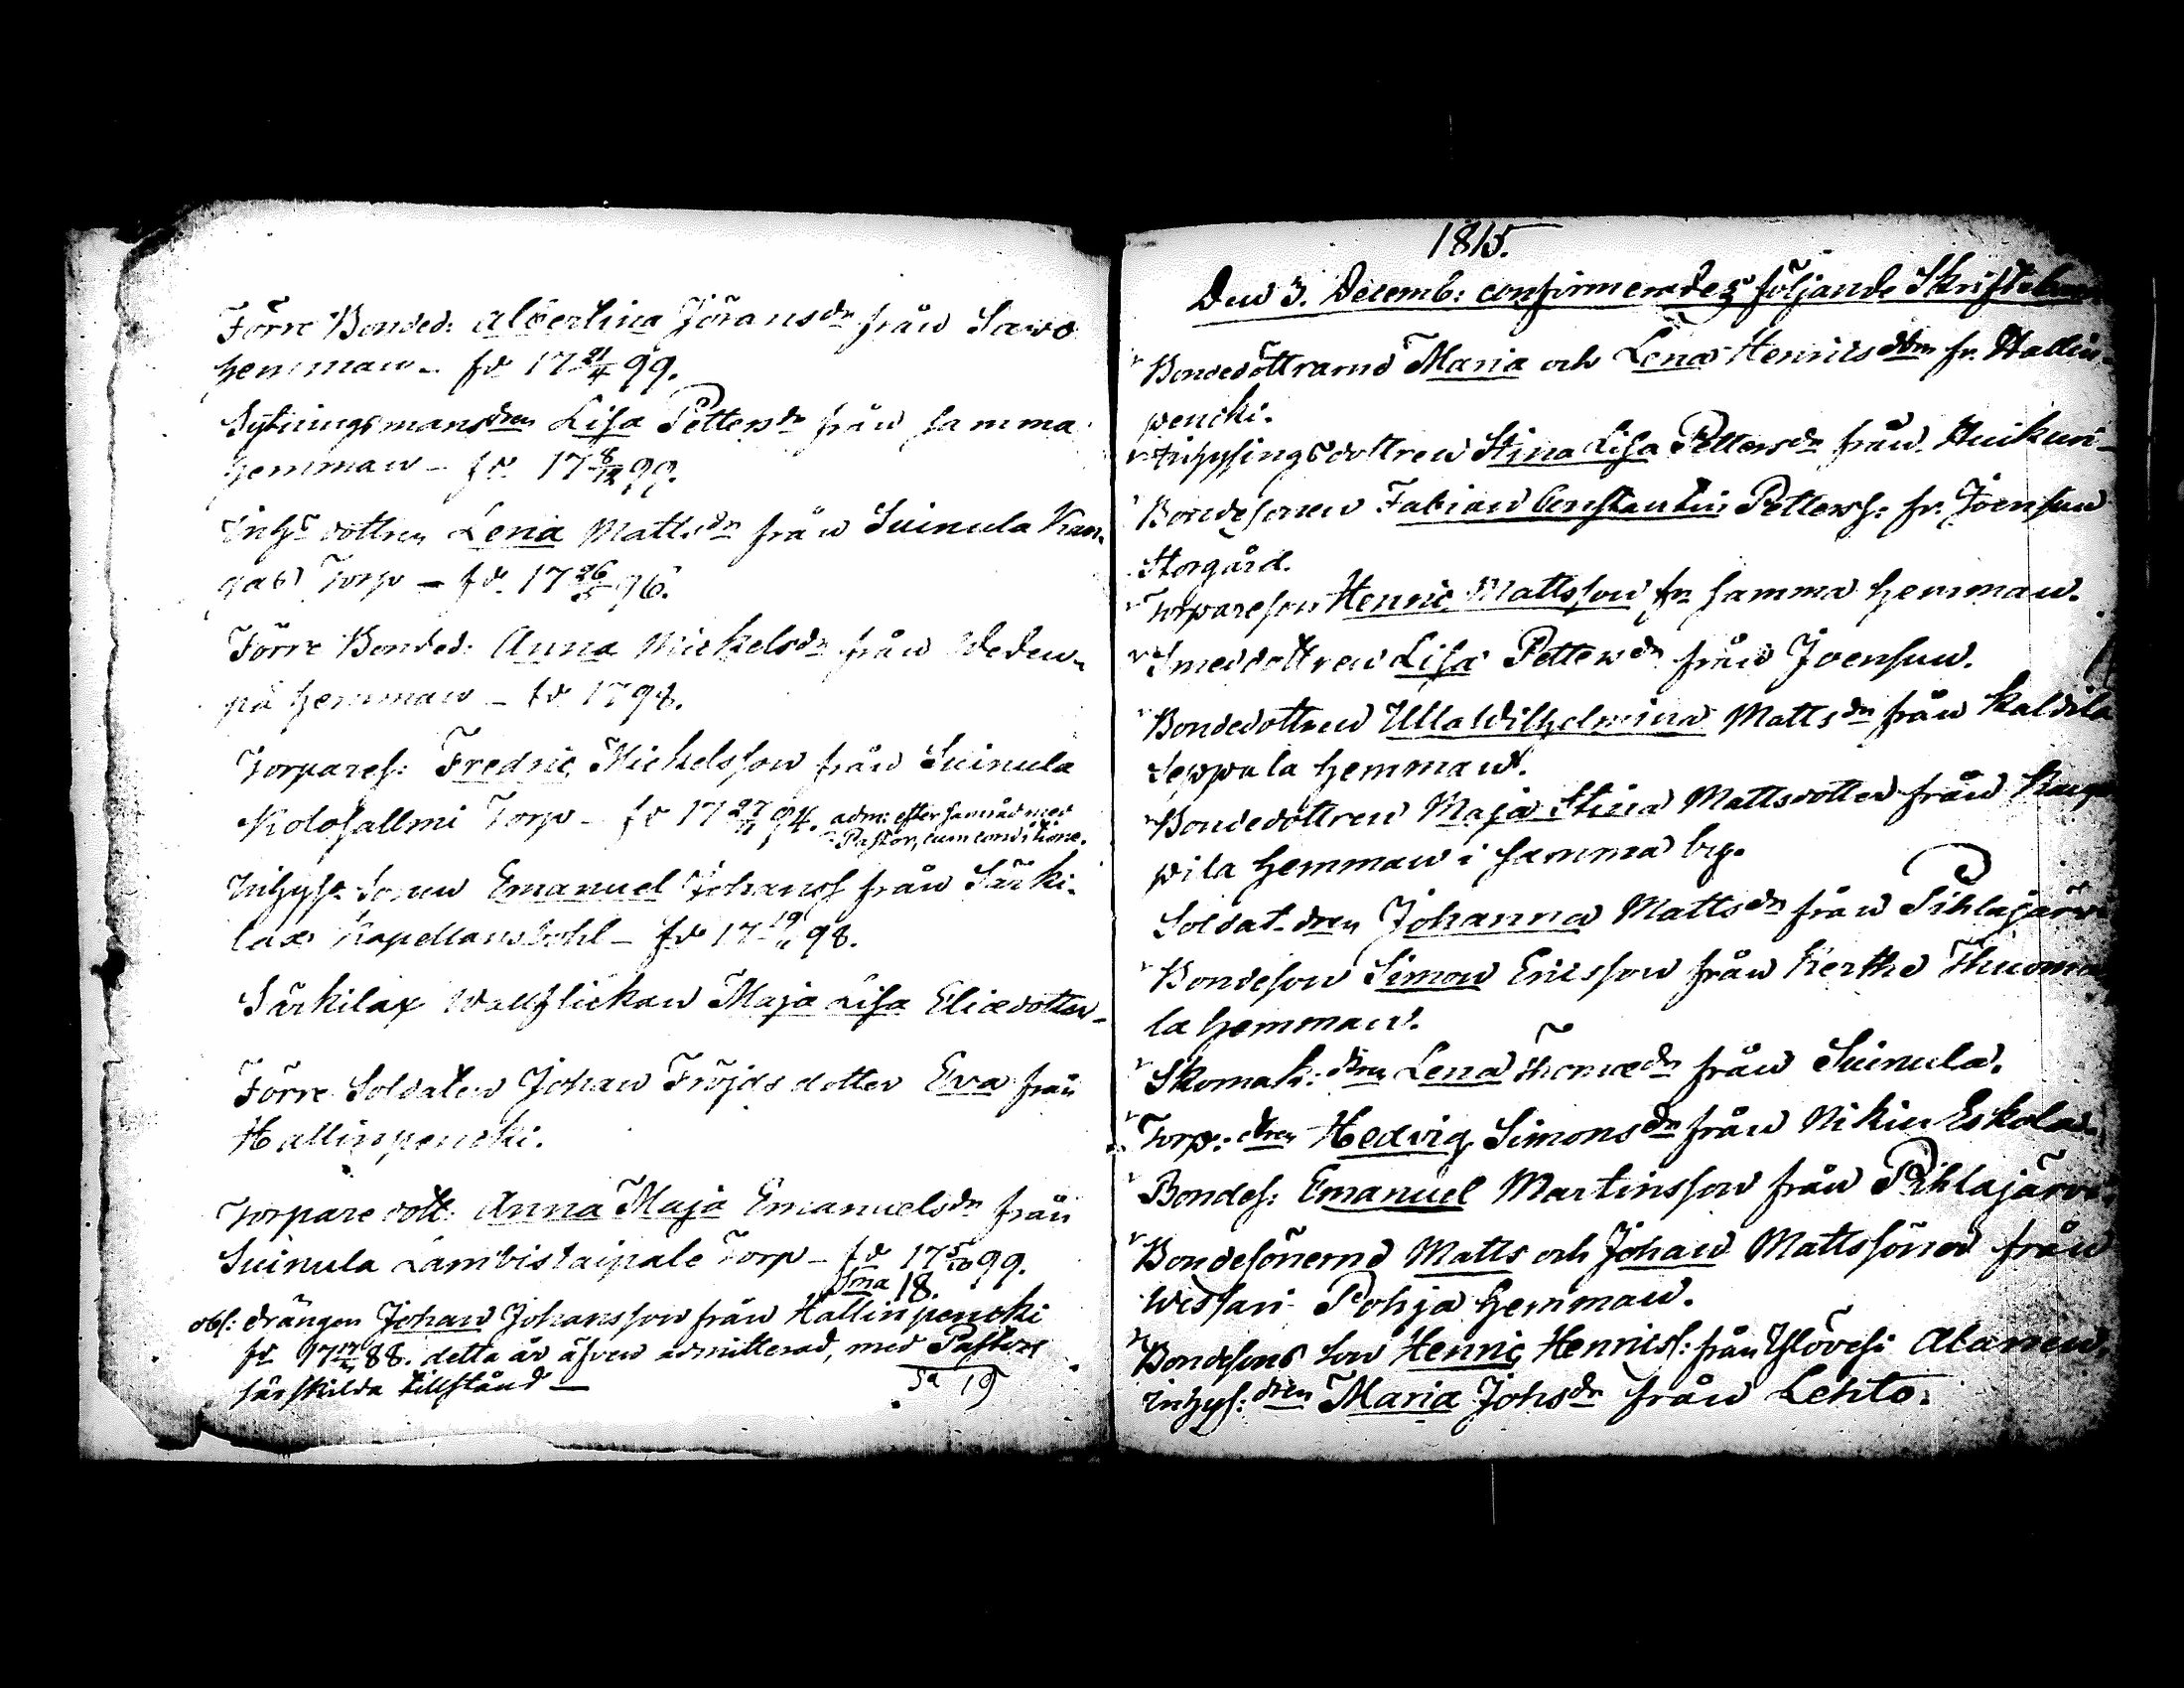 Förre Bonded: Albertina Jöransdr från Savo
hemman – fd 17 21/4 99.
Sytningsmansdren Lisa Pettersdr från samma
hemman – fd 17 8/12 99.
Inhs dottren Lena Mattsdr från Suinula Kan-
gas Torp – fd. 17 26/5 96.
Förre Bonded: Anna Mickelsdr från Weden-
pä hemman – fd 1798.
Torpares: Fredric Mickelsson från Suinula
Kolosallmi Torp – fd 17 27/11 94. adm: efter samråd med
Pastor, cum conditione.
Inhyse Sonen Emanuel Johans från Särki-
lax Kapellansbohl – fd 17 19/11 98.
Särkilax Wallflickan Maja Lisa Eliædotter –
Förre Soldaten Johan Fröjds dotter Eva från
Hallinpencki.
Torpare dott: Anna Maja Emanuelsdr från
Suinula Lambistaipale Torp – fd 17 5/10 99.
Sma 18.
obs: drängen Johan Johansson från Hallinpencki
fd 17 88. detta år äfven admitterad, med Pastors
särskilda tillstånd –
Sa 19
1815.
Den 3. Decemb: confirmerades följande
Bondedöttrarne Maria och Lena Henricsdtrar fr. Hallin-
pencki.
Inhysingsdottren Stina Lisa Pettersdr från Huikuri –
Bondesonen Fabian Constantin Petters: fr. Joensuu
Storgård.
Torpareson Henric Mattsson fr samma hemman.
Smeddottren Lisa Pettersdr från Joensuu.
Bondedottren Ulla Wilhelmina Mattsdr från Kaldila
Seppala hemman.
Bondedottren Maja Stina Mattsdotter från
pila hemman i samma by.
Soldat-dren Johanna Mattsdr från Pihlajärvi
Bondeson Simon Ericsson från Kerthe Thuoma
la hemman.
Skomak: dren Lena Thomædr från Suinula.
Torp: dren Hedvig Simonsdr från Nikin Eskola.
Bondes: Emanuel Martinsson från Pihlajärvi
Bondesönerne Matts och Johan Mattssöner från
Wessari Pohja hemman.
Bondesons son Henric Henrics: från Ylövesi Alanen.
Inhys: dren Maria Johsdr från Lehto.